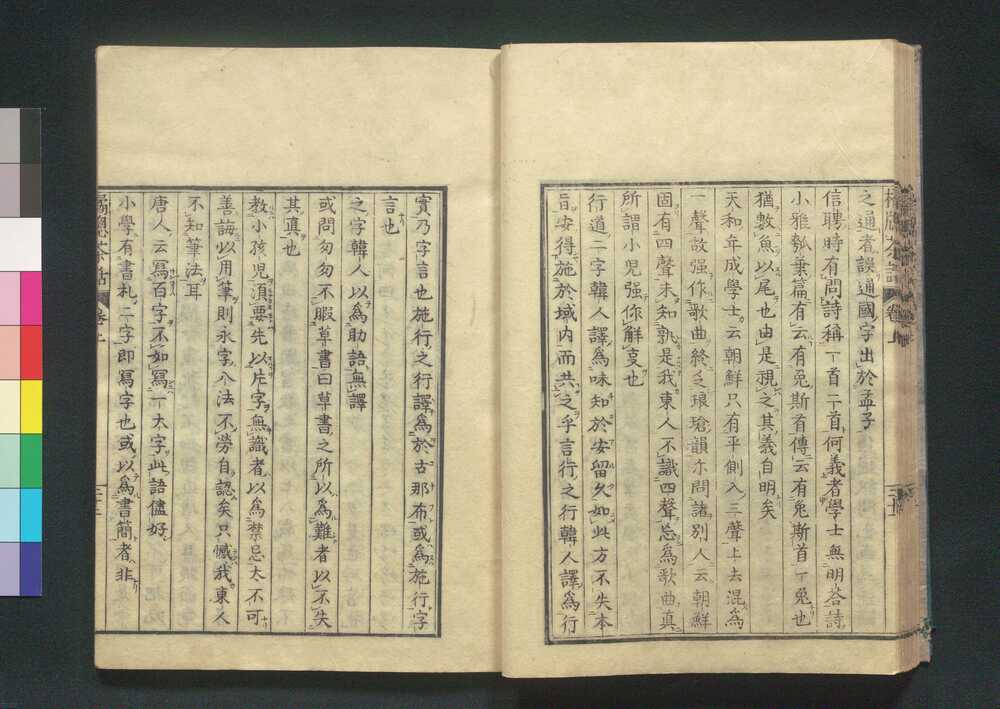 之通者誤通國字出於孟子
信聘時有問詩稱一首二首何義者學士無明答詩
小雅瓠葉篇有云有兎斯首傳云有兎斯首一兎也
猶數魚以尾也由是視之其義自明矣
天和年成學士云朝鮮只有平側入三聲上去混為
一聲故强作歌曲終之琅瑲韻亦問諸別人云朝鮮
固有四聲未知孰是我東人不識四聲忘為歌曲真
所謂小児强你解事也
行道二字韓人譯為味知於安留久如此方不失本
旨安得施於域内而共之乎言行之行韓人譯為行
實乃字言也施行之行譯為於古那布或為施行字
言也
之字韓人以為助語無譯
或問匆匆不暇草書曰草書之所以為難者以不失
其真也
教小孩児湏要先以片字無識者以為禁忌太不可
善誨以用筆則永字八法不勞自認矣只懺我東人
不知筆法耳
唐人云寫百字不如寫一大字此語儘好
小學有書札二字即寫字也或以為書簡者非
橘窓茶話 卷上